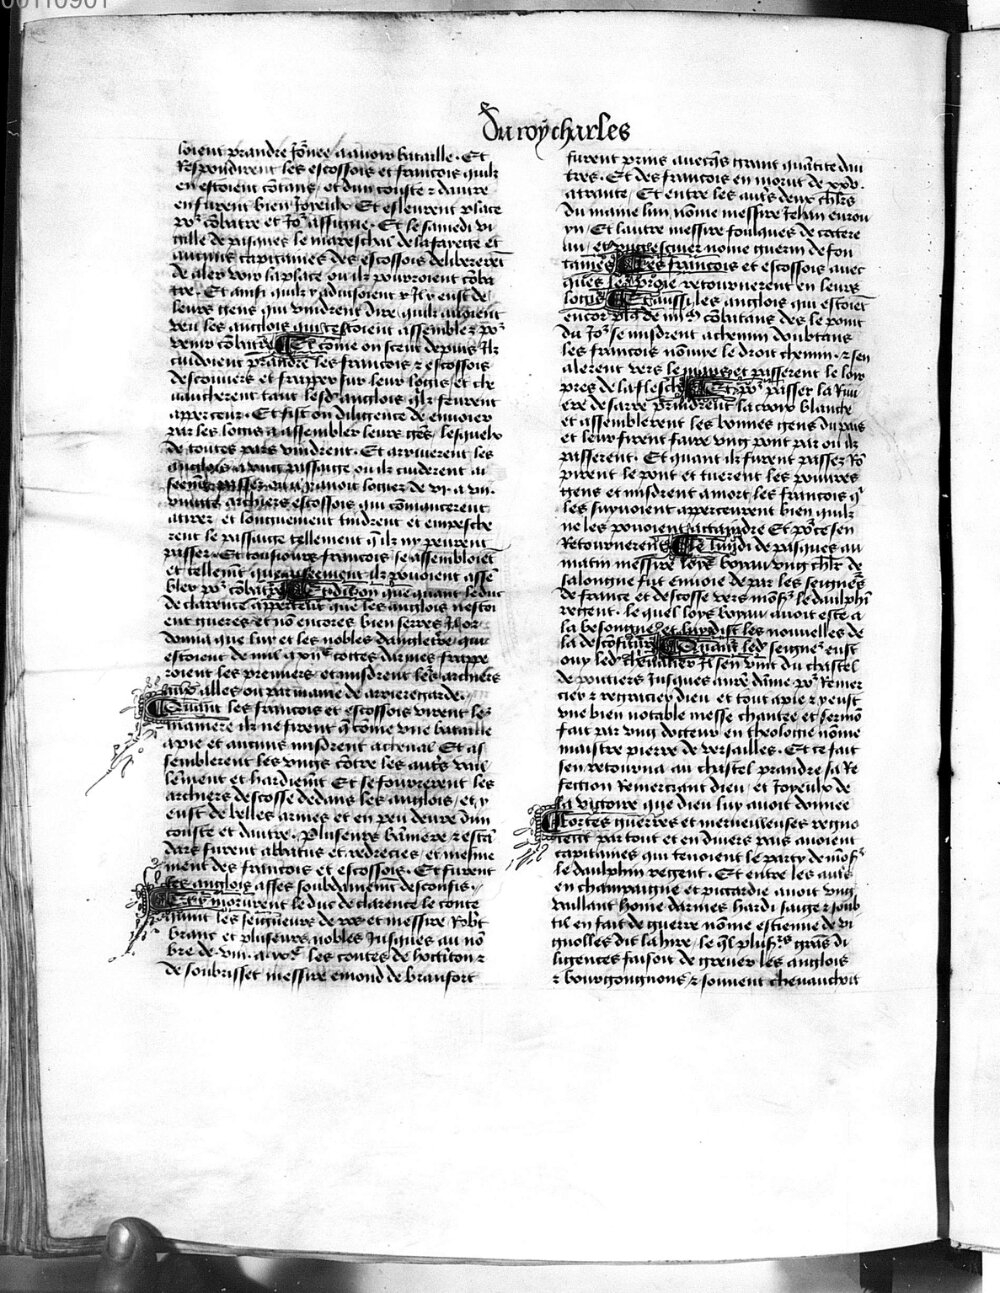 00110901
Du roy charles
loient prandre iournee a auoir bataille. Et
Respondirent les escossois et francois quilz
en estoient contans et dun couste & dautre
en furent bien Joyeulx Et esleurent place
po^r combatre et Jo^r assigne. Et le samedi vi
gille de pasques le mareschal de la fayecte et
aucuns capitaines des escossois delibererent
de aler voir la place ou ilz pourroient comba
tre. Et ainsi quilz y aduisoient & Il y eust de
leurs gens qui vindrent dire quilz auoient
veu les anglois qui sestoient assemblez po^r
venir combatre Et come on sceut depuis Ilz
cuidoient prandre les francois & escossois
descouuers et frapper sur leur logis et che
uaucherent tant lesd anglois qlz feurent
apperceuz. Et fist on diligence de enuoier
par les logis a assembler leurs gens lesquelx
de toutes pars vindrent. Et arriuerent les
anglois a vng passaige ou ilz cuiderent
passer ou il auoit logiez de vi. a vii.
archiers escossois qui commancerent
a tirer et longuement tindrent et empesche
rent le passaige tellement q ilz ny peurent
passer. Et tousiours francois se assembloient
et tellemt que aisement ilz pouoient asse
bler po^r combatre Et dit on que quant le duc
de clarence apperceut que les anglois nestoi
ent gueres et non encores bien serrez Il or
donna que luy et les nobles dangleterre qui
estoient de mil a xii^c cottes darmes frappe
roient les premiers et misdrent les archiers
alles ou par maniere de arriere garde.
Quant les francois et escossois virent les
maniere ilz ne firent q come vne bataille
a pie et aucuns misdrent a cheual Et as
semblerent les vngs contre les autres vail
lemment et hardiement Et se fourrerent les
archiers descosse dedans les anglois et y
eust de belles armes et en peu deure dun
couste et dautre. Pluseurs baniere & estan
dars furent abbatus et redreciez et mesme
ment des francois et escossois. Et furent
les anglois asses soubdainemt desconfis.
Et y morurent le duc de clarence le conte
quant les seigneurs de ros et messire Rob^t
brant et pluseurs nobles Jusques au no
bre de les contes de hoctiton &
de soubrisset messire emond de beaufort
furent prins auecqs grant quantite dau
tres. Et des francois en morut de xxv.
a trante. Et entre les aut^s deux chlrs
du maine lun nome messire Jehan enrou
yn Et lautre messire foulques de
et vng escuier nome guerin de fon
taines Les francois et escossois auec
ques leur proie retournerent en leurs
logis Et aussi les anglois qui estoient
encor pl^s de combatans des le point
du Jo^r se misdrent a chemin doubtans
les francois non ve le droit chemin. & sen
alerent vers le mans et passerent le loir
pres de la flesche Et po^r passer la riui
ere de sarre prandrent la croix blanche
et assemblerent les bonnes gens du pais
et leur firent faire vng pont par ou ilz
passerent. Et quant ilz furent passez Ro
pirent le pont et tuerent les poures
gens et misdrent a mort les francois q^i
les suyuoient apperceurent bien quilz
ne les pouoient actaindre Et po^r ce sen
Retournerent Le lundi de pasques au
matin messire loys boyau vng chlr de
salongne fut enuoie de par les seigners
de france et descosse vers mons^r le daulphin
regent. le quel loys boyau auoit este a
la besongne. et luy dist les nouuelles de
la desconfiture Quant led seigne^r eust
ouy led cheualier Il sen vint du chastel
de poitiers Jusques a nr̃e dame po^r Remer
cier & regracier dieu et tout a pie & y eust
vne bien notable messe chantee et sermo
fait par vng docteur en theologie nome
maistre pierre de versailles. Et ce fait
sen retourna au chastel prandre sa Re
fection Remerciant dieu et Joyeulx de
la victoire que dieu luy auoit donnee
Fortes guerres et merueilleuses regno
ient par tout et en diuers pais auoient
capitaines qui tenoient le party de mons^r
le daulphin regent. Et entre les aut^s
en champaigne et piccardie auoit vng
vaillant home darmes hardi saige & soub
til en fait de guerre nome estienne de vi
gnolles dit lahire. le ql plus^rs grãs di
ligences faisoit de greuer les anglois
& bourgongnons. & souuent cheuauchoit